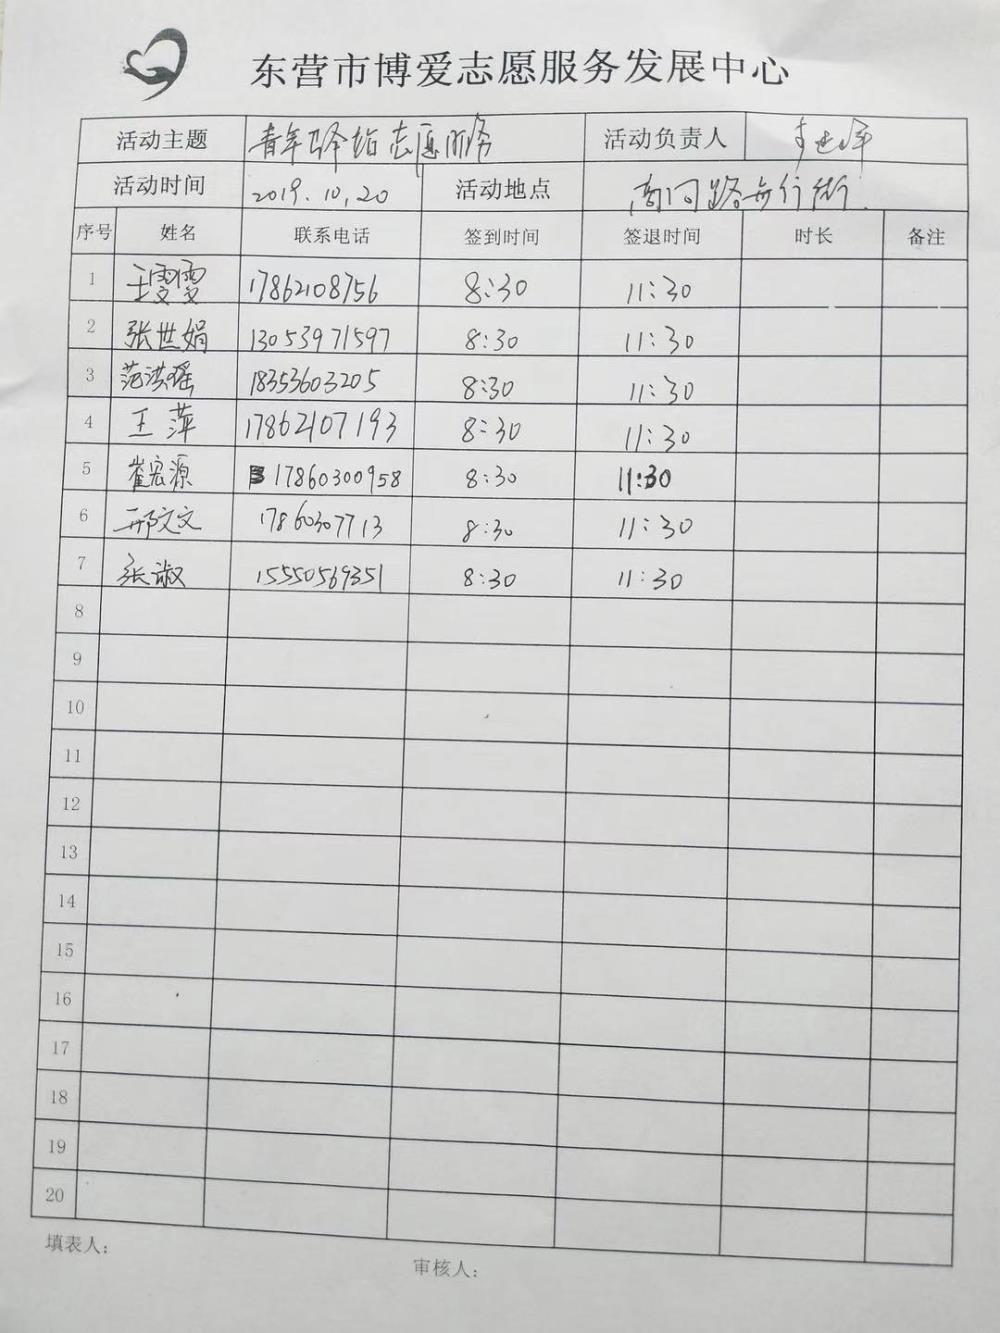 东营市博爱志愿服务发展中心
活动主题 青年驿站志愿服务 活动负责人
活动时间 2019.10.20 活动地点 步行街
序号 姓名 联系电话 签到时间 签退时间 时长 备注
1 王雯雯 17862108756 8:30 11:30
2 张世娟 13053971597 8:30 11:30
3 范洪瑶 18353603205 8:30 11:30
4 王萍 17862107193 8:30 11:30
5 崔宏源 17860300958 8:30 11:30
6 邢文文 17860307713 8:30 11:30
7 张淑 15550569351 8:30 11:30
8
9
10
11
12
13
14
15
16
17
18
19
20
填表人：
审核人：